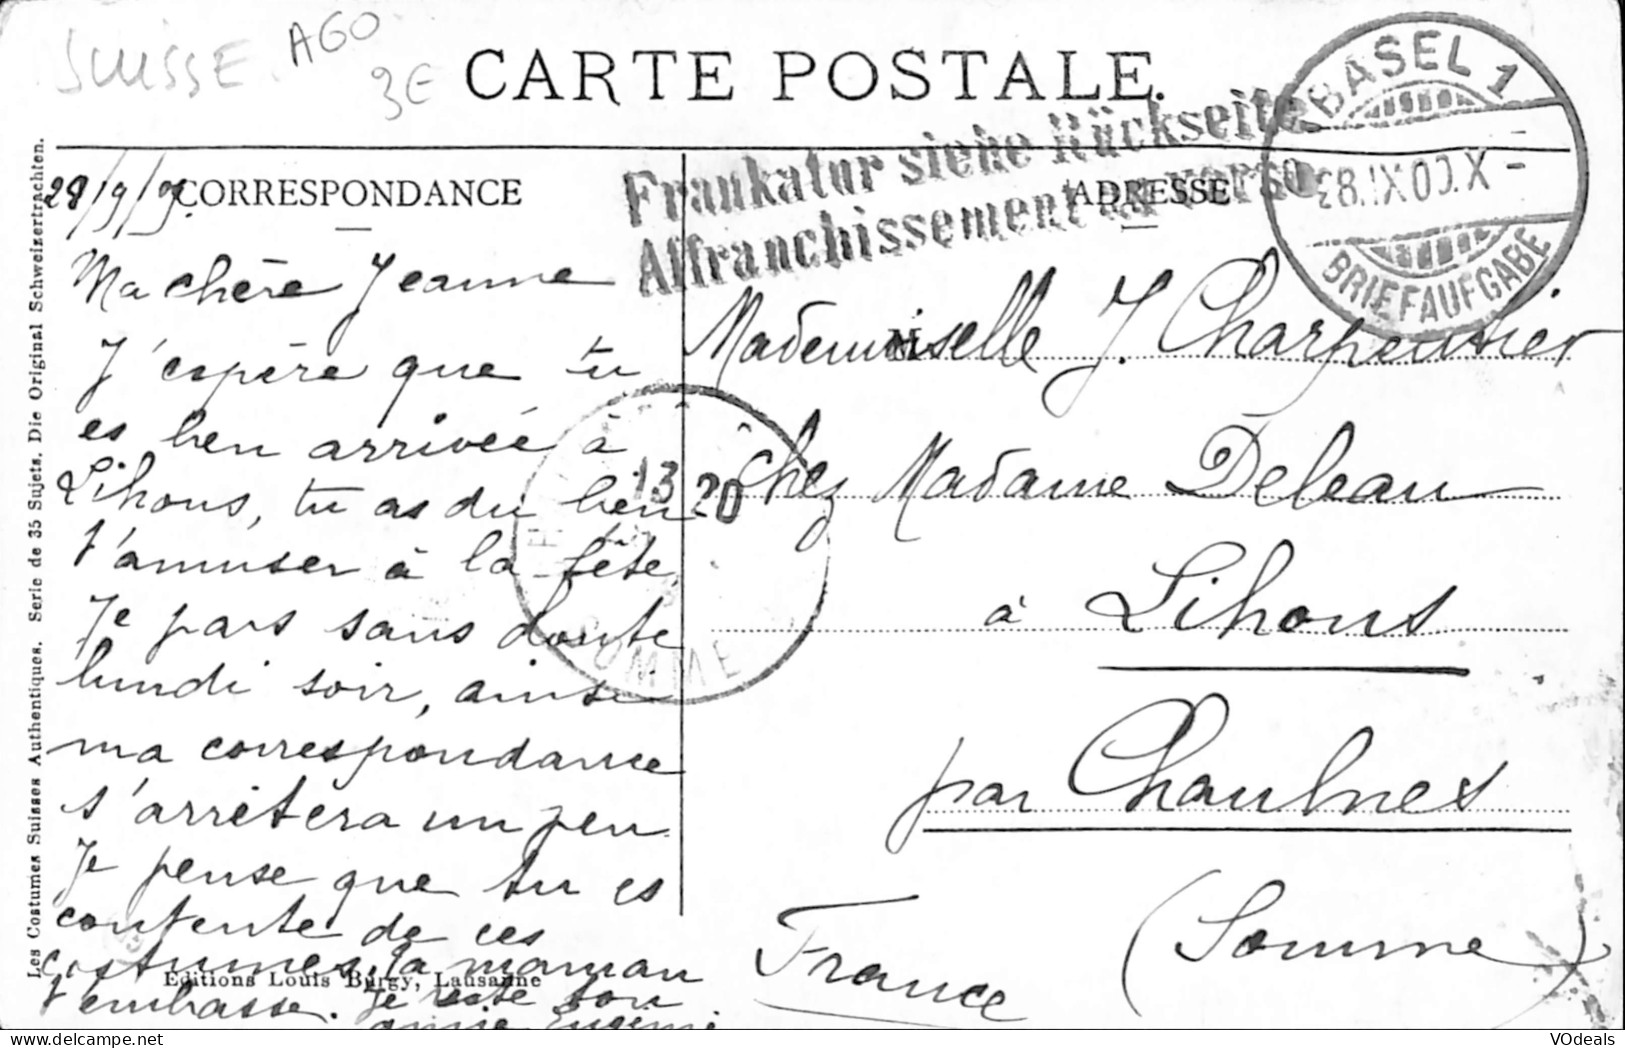 SUISSE
A60
3E
CARTE POSTALE.
Frankatur siehe Rückseite
Affranchissement au verso
BASEL 1
28.IX.09.X-
BRIEFAUFGABE
28/9/09.
CORRESPONDANCE
Ma chère Jeanne
J'espère que tu
es bien arrivée à
Lihons, tu as du bien
t'amuser à la fête.
Je pars sans doute
lundi soir, ainsi
ma correspondance
s'arrêtera un peu.
Je pense que tu es
contente de ces
costumes, ta maman
t'embrasse. Je reste ton
amie Eugénie
ADRESSE
M
Mademoiselle J. Charpentier
chez Madame Deleau
à Lihons
par Chaulnes
(Somme)
France
13 20
SOMME
Les Costumes Suisses Authentiques. Serie de 35 Sujets. Die Original Schweizertrachten.
Editions Louis Bürgy, Lausanne
VOdeals